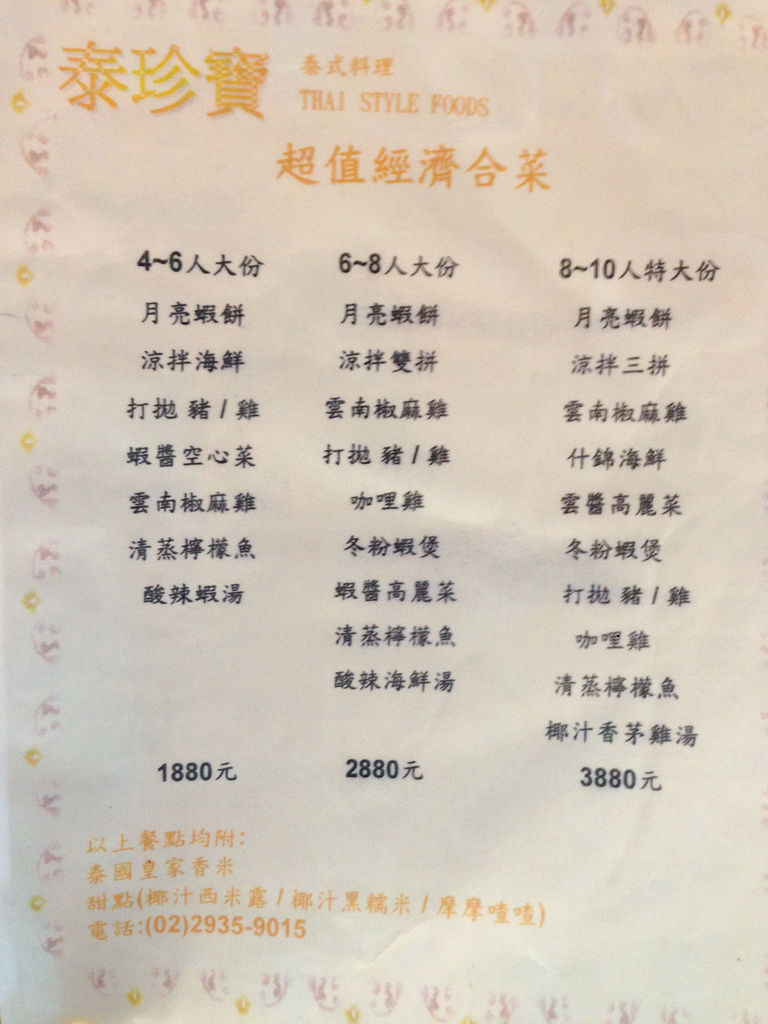 泰珍寶
泰式料理
THAI STYLE FOODS
超值經濟合菜
4~6人大份
月亮蝦餅
涼拌海鮮
打拋 豬 / 雞
蝦醬空心菜
雲南椒麻雞
清蒸檸檬魚
酸辣蝦湯
1880元
6~8人大份
月亮蝦餅
涼拌雙拼
雲南椒麻雞
打拋 豬 / 雞
咖哩雞
冬粉蝦煲
蝦醬高麗菜
清蒸檸檬魚
酸辣海鮮湯
2880元
8~10人特大份
月亮蝦餅
涼拌三拼
雲南椒麻雞
什錦海鮮
雲醬高麗菜
冬粉蝦煲
打拋 豬 / 雞
咖哩雞
清蒸檸檬魚
椰汁香茅雞湯
3880元
以上餐點均附:
泰國皇家香米
甜點(椰汁西米露 / 椰汁黑糯米 / 摩摩喳喳)
電話:(02)2935-9015